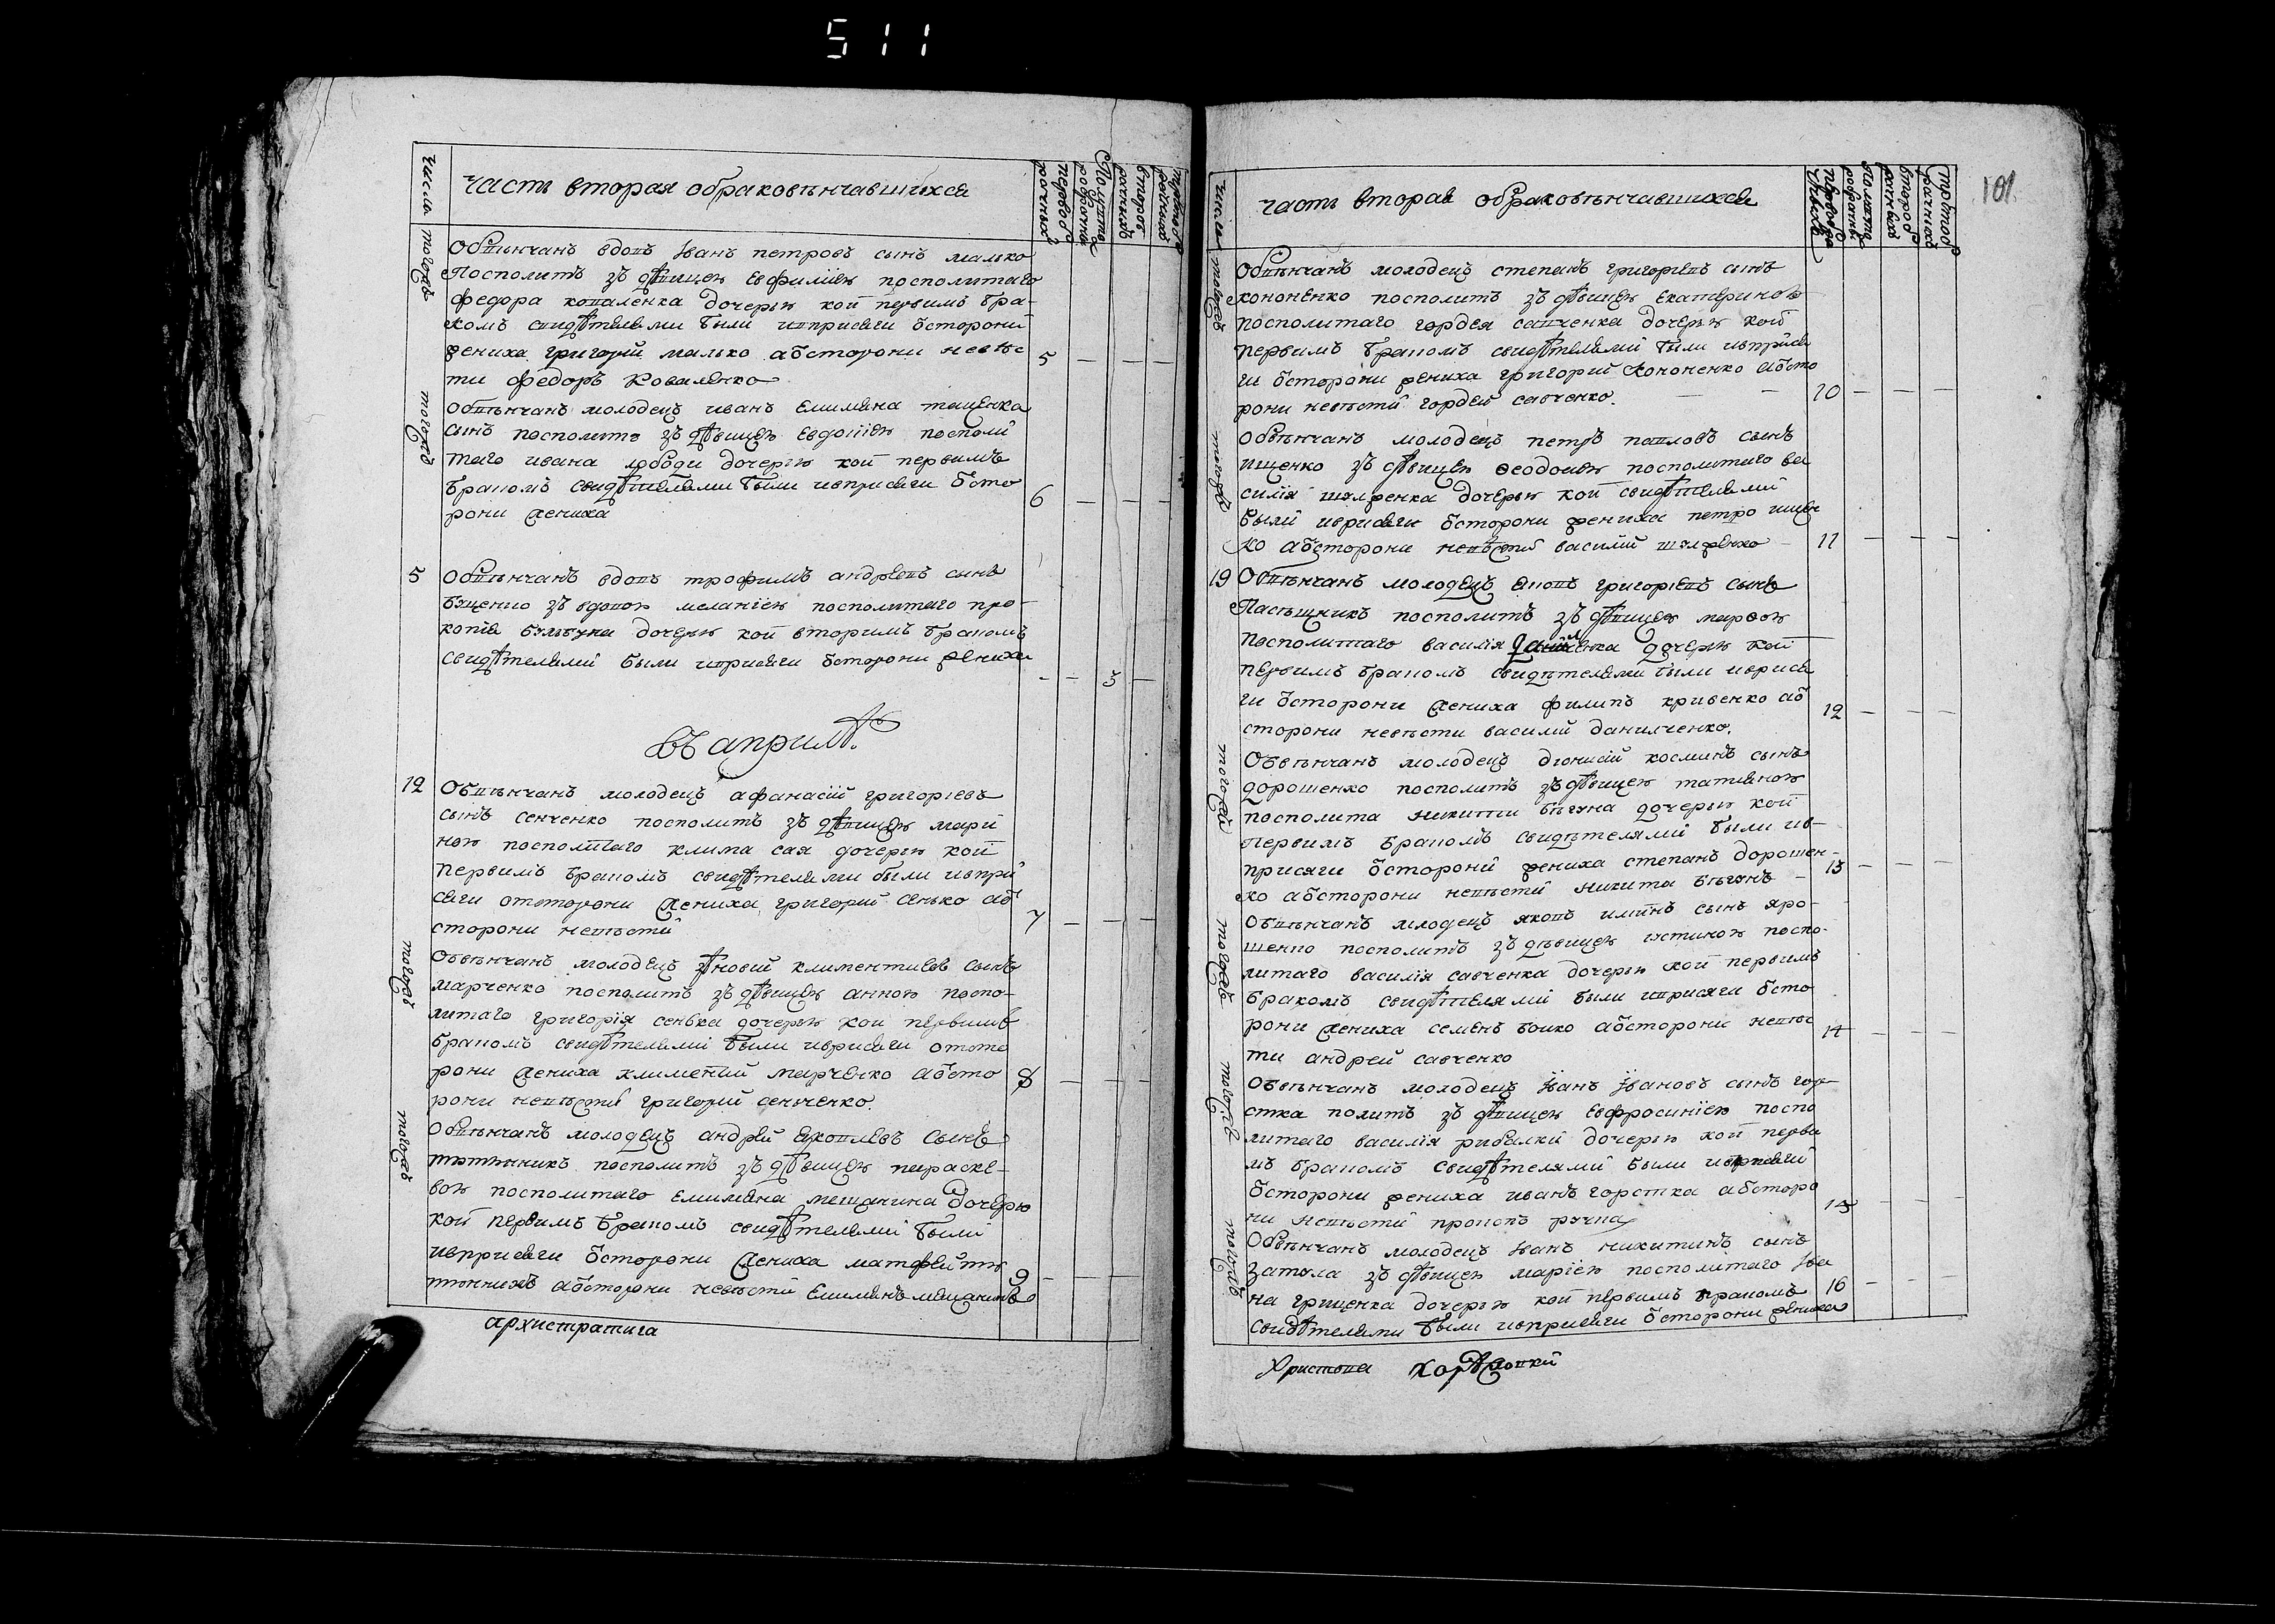 511
101
число
часть вторая о браковѣнчавшихся
тогождъ
Обвѣнчанъ вдовъ Іванъ петровъ сынъ малько
Посполитъ зъ дѣвицею Евфиміею посполитаго
федора коваленка дочерью кой первимъ бра-
комъ свидѣтелями были ивприсяги ѿсторони
жениха григорій малько аѿсторони невѣс
ти федоръ коваленко
5
тогождъ
обвѣнчанъ молодецъ иванъ емиляна тащенка
сынъ посполитъ зъ дѣвицею Евдокіею посполи
таго ивана лободи дочерью кой первимъ
бракомъ свидѣтелями были ивприсяги ѿсто
рони жениха
6
5
Обвѣнчанъ вдовъ трофимъ андреевъ сынъ
бященко зъ вдовою меланіею посполитаго про-
копія дочерью кой вторимъ бракомъ
свидѣтелямі были ивприсяги ѿсторони жениха
3
въ априлѣ.
12
Обвѣнчанъ молодецъ афанасій григоріевъ
сынъ сенченко посполитъ зъ дѣвицею мари
ною посполитаго клима сая дочерью кой
первимъ бракомъ свидѣтелями были ивпри
сяги отсторони жениха григорій сенько аѿ
сторони невѣсти
7
тогождъ
Обвѣнчанъ молодецъ зѣновій климентиевъ сынъ
марченко посполитъ зъ дѣвицею анною поспо-
литаго григорія сенька дочерью кои первимъ
бракомъ свидѣтелямі были ивприсяги отсто
рони жениха климентій марченко аѿсто
рони невѣстій григорій сенченко.
8
тогождъ
Обвѣнчанъ молодецъ андрей яковлевъ сынъ
посполитъ зъ дѣвицею параске-
вою посполитаго емиляна мещанина дочерю
кой первимъ бракомъ свидѣтелямі были
ивприсяги ѿсторони жениха матфей
аѿсторони невѣстій емилянъ мещанинъ
9
архистратига
число
часть вторая о браковѣнчавшихся
тогождъ
Обвѣнчанъ молодецъ степанъ григориевъ сынъ
кононенко посполитъ зъ дѣвицею екатериною
посполитаго гордея савченка дочерью кой
первимъ бракомъ свидѣтелямі были ивприся
ги ѿсторони жениха григорий кононенко аѿсто
рони невѣстій гордей савченко.
10
тогождъ
обвѣнчанъ молодецъ петръ павловъ сынъ
ищенко зъ дѣвицею ѳеодосиею посполитаго ва
силія дочерью кой свидѣтелямі
были ивприсяги ѿсторони жениха петро ищен
ко аѿсторони невѣстій василій
11
19
Обвѣнчанъ молодецъ яковъ григорієвъ сынъ
Пасѣщникъ посполитъ зъ дѣвицею марѳою
посполитаго василія данилченка дочерью кой
первимъ бракомъ свидѣтелями были ивприся
ги ѿсторони жениха филипъ кривенко аѿ
сторони невѣсти василій данилченко.
12
тогождъ
Обвѣнчанъ молодецъ дионисій косминъ сынъ
дорошенко посполитъ зъ дѣвицею татияною
посполита никити бѣгуна дочерью кой
первимъ бракомъ свидѣтелямі были ив-
присяги ѿсторони жениха степанъ дорошен-
ко аѿсторони невѣстій никита бѣгунъ
13
тогождъ
Обвѣнчанъ молодецъ яковъ сынъ яро-
шенко посполитъ зъ дѣвицею іустиною поспо-
литаго василія савченка дочерью кой первимъ
бракомъ свидѣтелямі были ивприсяги ѿсто
рони жениха семенъ бойко аѿсторони невѣс
ти андрей савченко
14
тогождъ
Обвѣнчанъ молодецъ Іванъ Івановъ сынъ гор-
стка политъ зъ дѣвицею евфросиніею поспо
литаго василія рибалки дочерью кой перви
мъ бракомъ свидѣтелямі были ивприсяги
ѿсторони жениха иванъ горстка аѿсторо
ни невѣстій
15
тогождъ
Обвѣнчанъ молодецъ Іванъ никитинъ сынъ
затула зъ дѣвицею маріею посполитаго Іва
на грищенка дочерью кой первимъ бракомъ
свидѣтелями были ивприсяги ѿсторони жениха
16
Христова